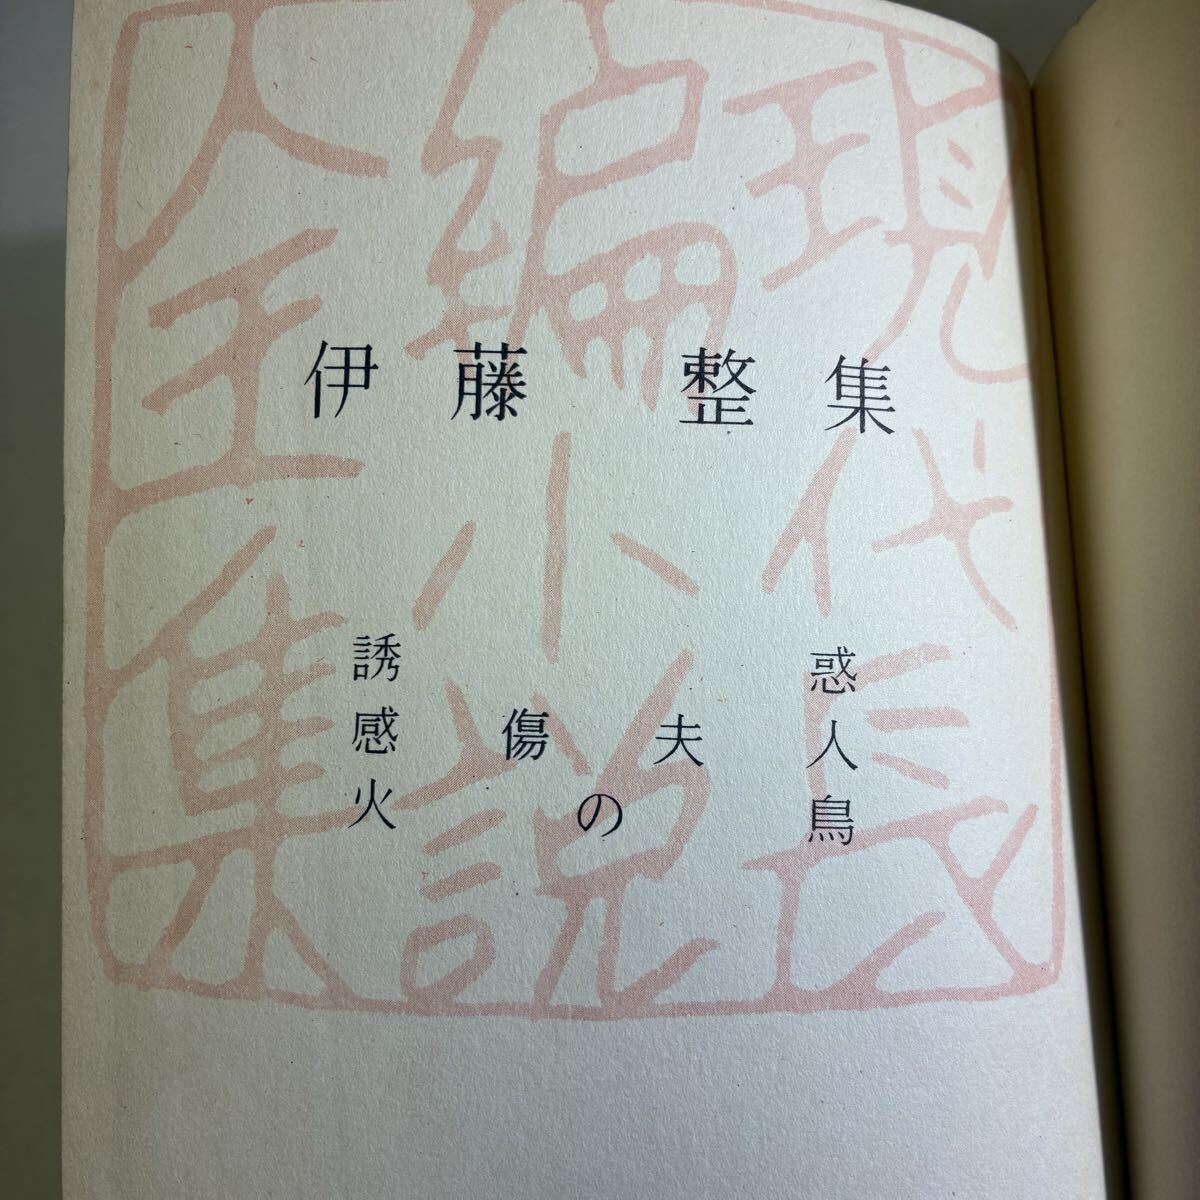 現代長編小説全集
伊藤整集
誘惑
感傷夫人
火の鳥